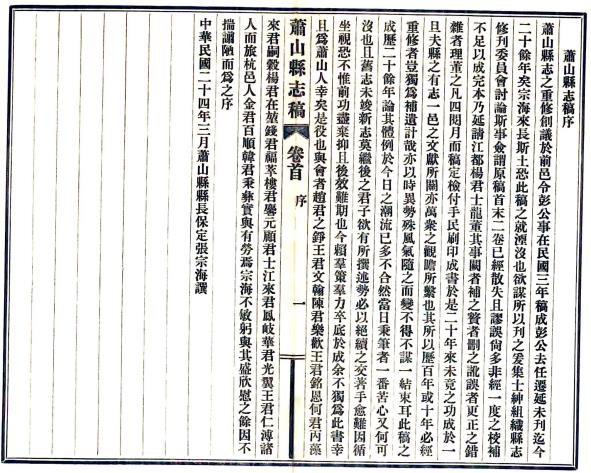 蕭山縣志稿序
蕭山縣志之重修創議於前邑令彭公事在民國三年稿成彭公去任遷延未刊迄今
二十餘年矣宗海來長斯土恐此稿之就湮沒也欲謀所以刊之爰集士紳組織縣志
修刊委員會討論斯事僉謂原稿首末二卷已經散失且謬誤尙多非經一度之校補
不足以成完本乃延請江都楊君士龍董其事闕者補之贅者刪之訛誤者更正之錯
雜者理董之凡四閱月而稿定檢付手民刷印成書於是二十年來未竟之功成於一
旦夫縣之有志一邑之文獻所關亦萬衆之觀瞻所繫也其所以歷百年或十年必經
重修者豈獨爲補遺計哉亦以時異勢殊風氣隨之而變不得不謀一結束耳此稿之
成歷二十餘年論其體例於今日之潮流已多不合然當日秉筆者一番苦心又何可
沒也且舊志未竣新志莫繼後之君子欲有所撰述勢必以絕續之交著手愈難因循
坐視恐不惟前功盡棄抑且後效難期也今賴羣策羣力卒底於成余不獨爲此書幸
且爲蕭山人幸矣是役也與會者趙君之錚王君文翰陳君樂歡王君銘恩何君丙藻
蕭山縣志稿 卷首 序 一
來君嗣穀楊君在堃錢君福萃樓君鑾元顧君士江來君鳳岐華君光翼王君仁溥諸
人而旅杭邑人金君百順韓君秉彝實與有勞焉宗海不敏躬與其盛欣慰之餘因不
揣譾陋而爲之序
中華民國二十四年三月蕭山縣縣長保定張宗海譔